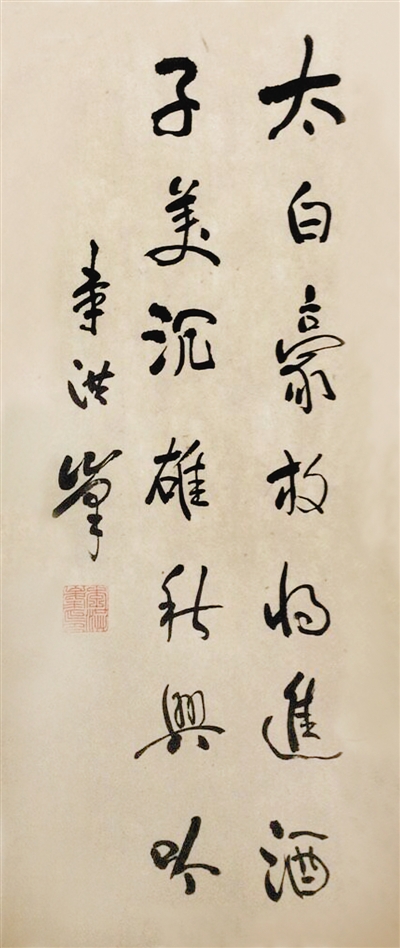 太白豪放将進酒
子美沉雄秋興吟